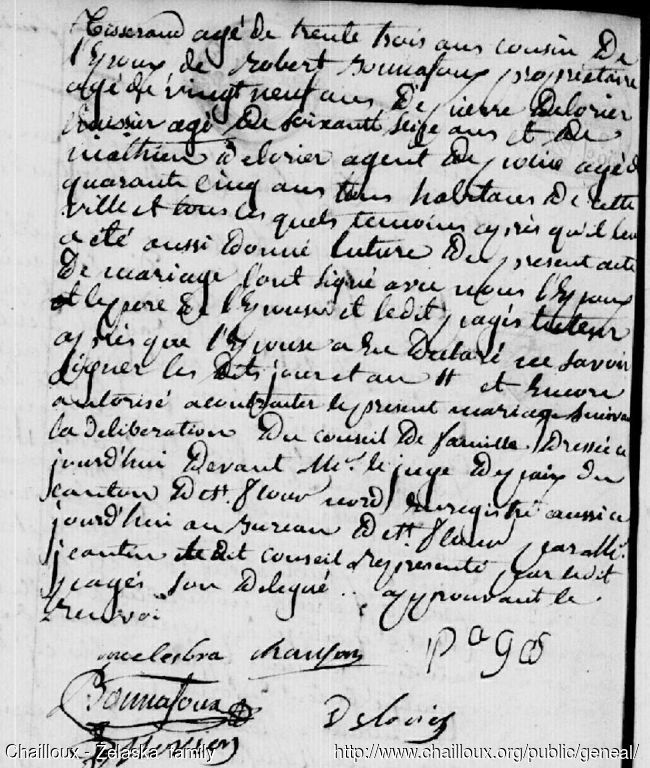 Tisserand agé de trente trois ans cousin De
l'Epoux de Robert Bonnafoux propriétaire
agé de vingt neuf ans De pierre Delorier
huissier agé De soixante seize ans et De
mathieu Delorier agent De police agé de
quarante Cinq ans tous habitans De cette
ville et tous les quels temoins après qu'il leur
a été aussi donné lecture Du present acte
De mariage l'ont signé avec nous l'Epoux
et le pere De l'Epouse et ledit pagés tuteur
après que l'Epouse a Eu Declaré ne savoir
signer les Dits jour et an # et Encore
autorisé a contracter le present mariage suivant
la deliberation Du conseil De famille Dressée ce
jourd'hui Devant Mr. le juge De paix Du
canton De St. flour nord Enregistré aussi ce
jourd'hui au Bureau De St flour par Mr.
jeantin ledit conseil representé par ledit
pagés son Delegué .. approuvant le
renvoi
pagés
Bonnafoux
Delorier
Chailloux - Zelaska family
http://www.chailloux.org/public/geneal/